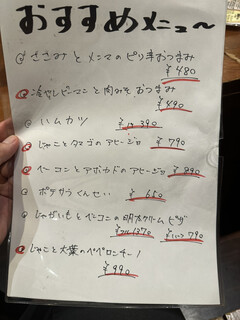 おすすめメニュ〜
ささみとメンマのピリ辛おつまみ
¥480
冷やしピーマンと肉みそおつまみ
¥490
ハムカツ
¥390
じゃことタマゴのアヒージョ ¥790
ベーコンとアボカドのアヒージョ ¥890
ポテサラくんせい ¥650
じゃがいもとベーコンの明太クリームピザ
¥1370 ¥790
じゃこと大葉のペペロンチーノ
¥990